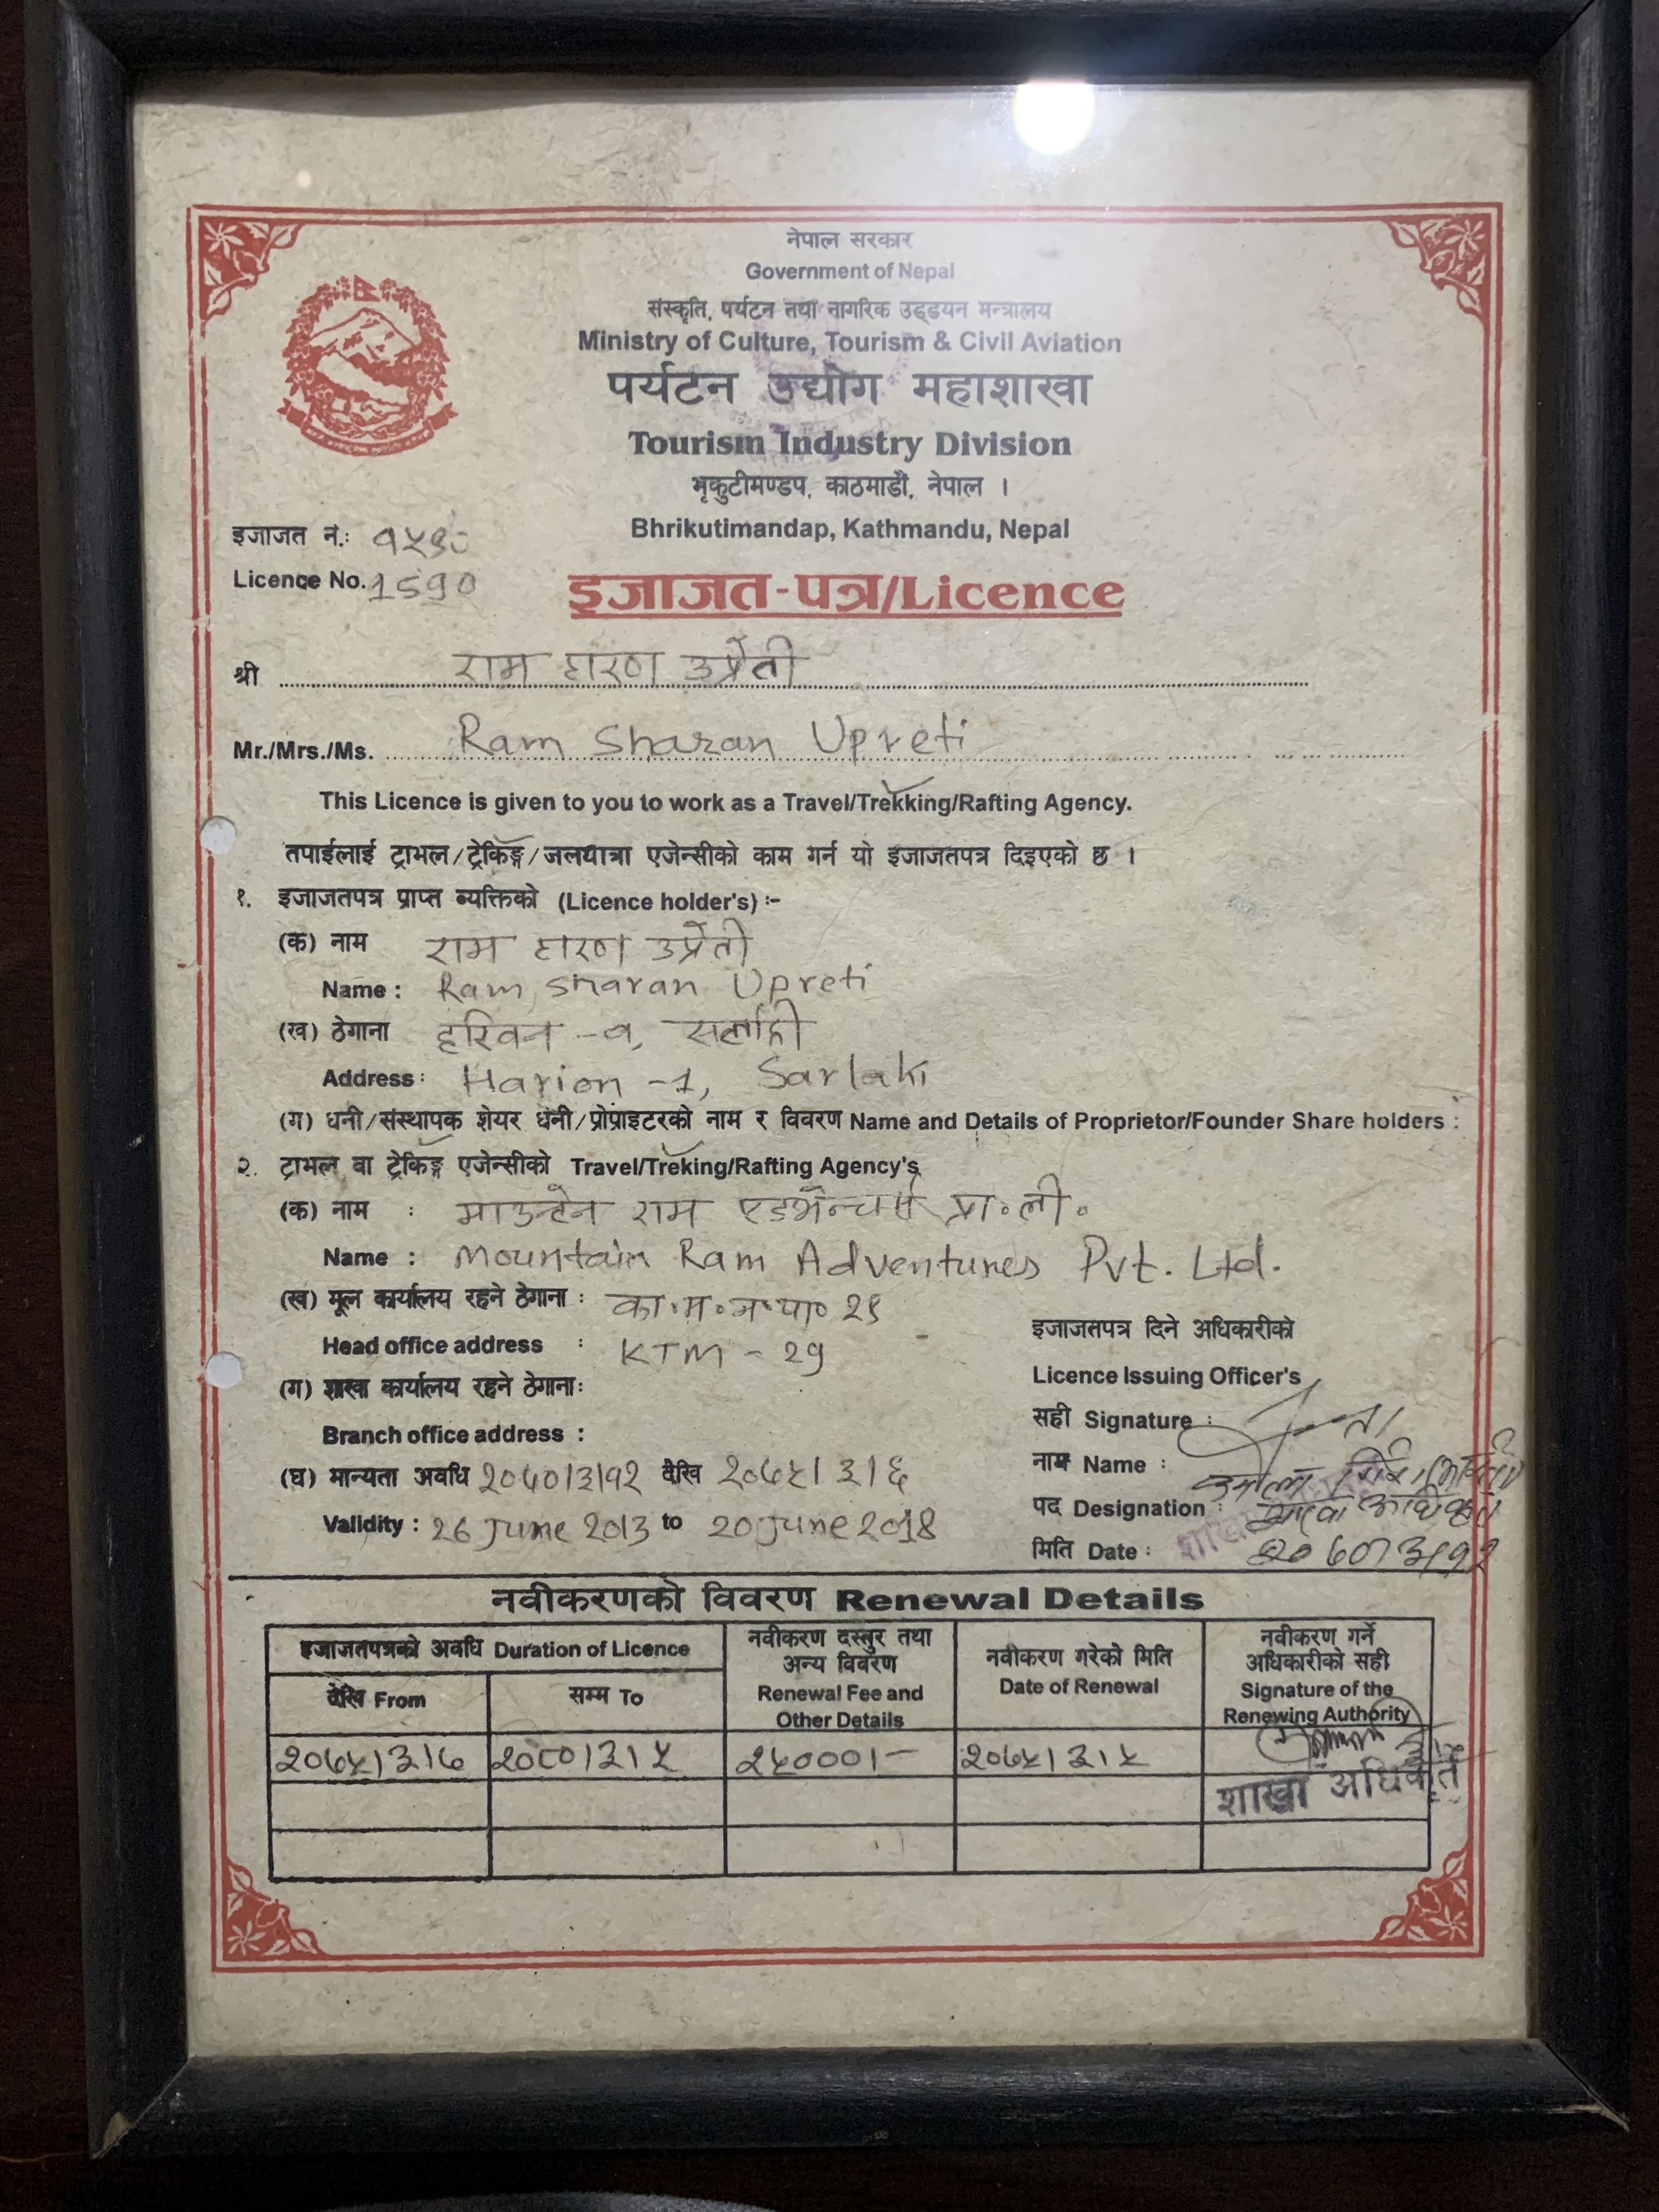 नेपाल सरकार
Government of Nepal
संस्कृति, पर्यटन तथा नागरिक उड्डयन मन्त्रालय
Ministry of Culture, Tourism & Civil Aviation
पर्यटन उद्योग महाशाखा
Tourism Industry Division
भृकुटीमण्डप, काठमाडौं, नेपाल ।
Bhrikutimandap, Kathmandu, Nepal
इजाजत नं.: १५९०
Licence No. 1590
इजाजत-पत्र/Licence
श्री राम शरण उप्रेती
Mr./Mrs./Ms. Ram Sharan Upreti
This Licence is given to you to work as a Travel/Trekking/Rafting Agency.
तपाईलाई ट्राभल/ट्रेकिङ्ग/जलयात्रा एजेन्सीको काम गर्न यो इजाजतपत्र दिइएको छ ।
१. इजाजतपत्र प्राप्त ब्यक्तिको (Licence holder's) :-
(क) नाम राम शरण उप्रेती
Name : Ram Sharan Upreti
(ख) ठेगाना हरिवन -१, सर्लाही
Address: Harion -1, Sarlahi
(ग) धनी/संस्थापक शेयर धनी/प्रोप्राइटरको नाम र विवरण Name and Details of Proprietor/Founder Share holders :
२. ट्राभल वा ट्रेकिङ्ग एजेन्सीको Travel/Treking/Rafting Agency's
(क) नाम : माउन्टेन राम एडभेन्चर्स प्रा.ली.
Name : Mountain Ram Adventures Pvt. Ltd.
(ख) मूल कार्यालय रहने ठेगाना : का.म.न.पा० २९
Head office address : KTM - 29
(ग) शाखा कार्यालय रहने ठेगाना:
Branch office address :
(घ) मान्यता अवधि २०७०/३/१२ देखि २०७५/३/६
Validity : 26 June 2013 to 20 June 2018
इजाजतपत्र दिने अधिकारीको
Licence Issuing Officer's
सही Signature :
नाम Name :
पद Designation : शाखा अधिकृत
मिति Date : २०७०/३/१२
नवीकरणको विवरण Renewal Details
इजाजतपत्रको अवधि Duration of Licence
देखि From
सम्म To
नवीकरण दस्तुर तथा
अन्य विवरण
Renewal Fee and
Other Details
नवीकरण गरेको मिति
Date of Renewal
नवीकरण गर्ने
अधिकारीको सही
Signature of the
Renewing Authority
२०७५/३/७ २०८०/३/५ २५०००/- २०७५/३/५
शाखा अधिकृत